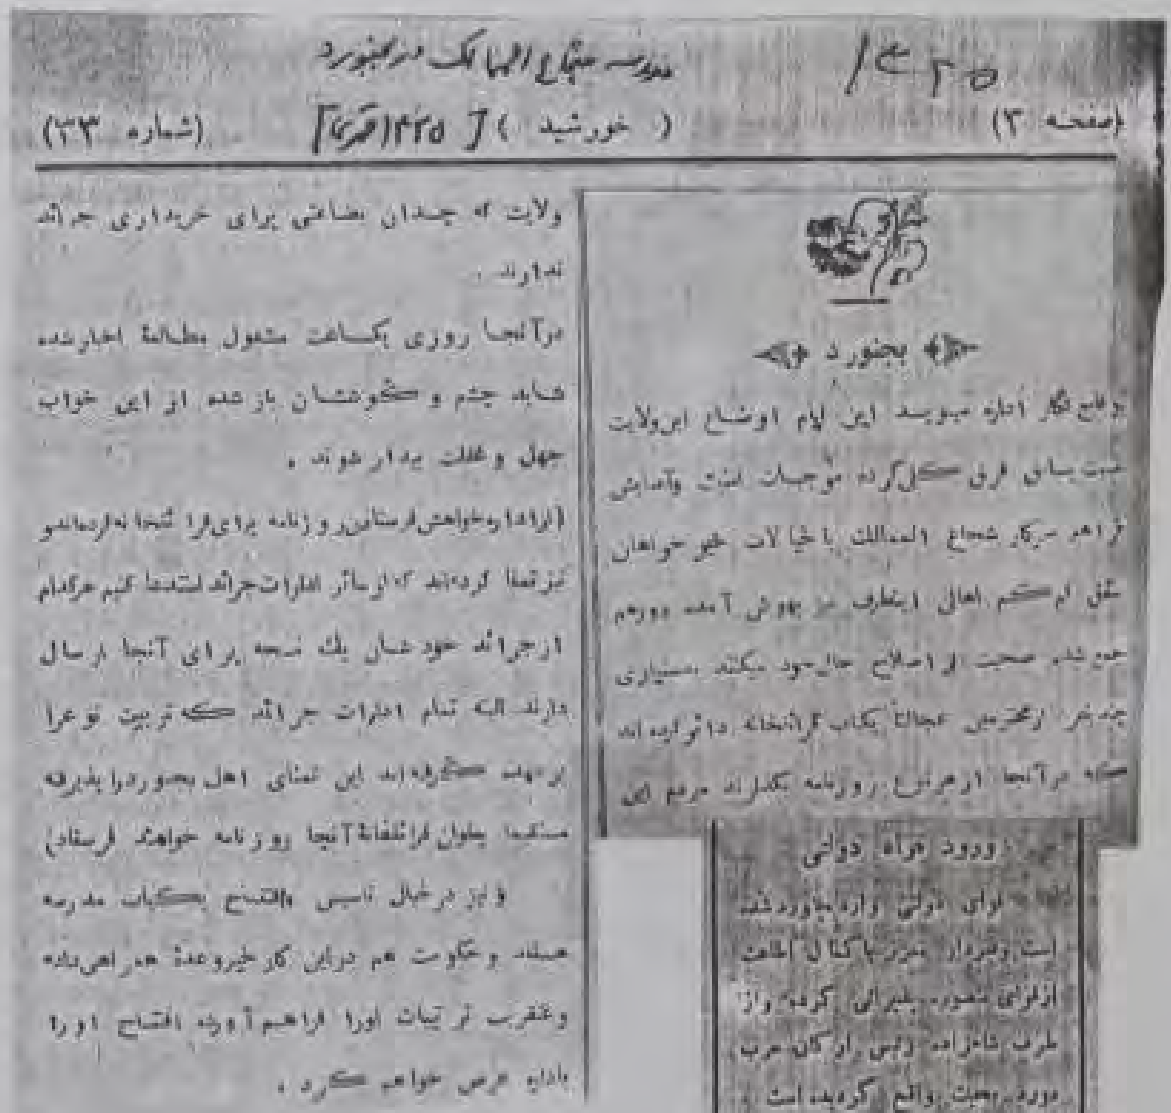 ۱۳۲۵
مدرسه شجاع الممالک در بجنورد
(صفحه ۳)
( خورشید ) [ ۱۳۲۵ قمری]
(شماره ۳۳)
بجنورد
وقایع نگار اداره مینویسد این ایام اوضاع این ولایت
نسبت بسابق فرق کلی کرده موجبات امنیت وآسایش
فراهم سرکار شجاع الممالک با خیالات خیر خواهان
متفق کم کم اهالی اینطرف نیز بهوش آمده دورهم
جمع شده صحبت از اصلاح حال خود میکنند بدستیاری
چند نفر از محترمین عجالتاً یکباب قرائتخانه دائر کرده اند
که درآنجا از هر نوع روزنامه بگذارند مردم این
ولایت که چندان بضاعتی برای خریداری جرائد
ندارند .
درآنجا روزی یکساعت مشغول مطالعهٔ اخبار شده
شاید چشم و گوششان باز شده از این خواب
جهل و غفلت بیدار شوند .
(از اداره خواهش فرستادن روزنامه برای قرائتخانه کرده‌اند و
نیز تمنا کرده‌اند که از سائر ادارات جرائد استدعا کنیم هرکدام
ازجرائد خودشان یك نسخه برای آنجا ارسال
دارند البته تمام ادارات جرائد که تربیت نوع را
برعهده گرفته‌اند این تمنای اهل بجنورد را پذیرفته
مستقیما بعنوان قرائتخانهٔ آنجا روزنامه خواهند فرستاد)
و نیز در خیال تاسیس وافتتاح یکباب مدرسه
هستند و حکومت هم دراین کار خیر وعدهٔ همراهی داده
و عنقریب ترتیبات اورا فراهم آورده افتتاح اورا
باداره عرض خواهم کرد .
ورود قوای دولتی
قوای دولتی وارد بجنورد شده
است وسردار معزز با کمال اطاعت
ازقوای مزبوره پذیرائی کرده واز
طرف شاهزاده رئیس ارکان حرب
مورد محبت واقع گردیده است